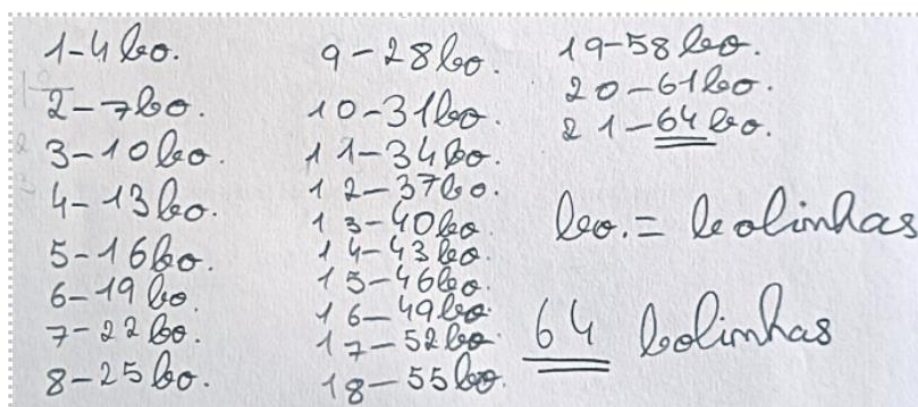 1-4 bo.
2-7 bo.
3-10 bo.
4-13 bo.
5-16 bo.
6-19 bo
7-22 bo.
8-25 bo.
9-28 bo.
10-31 bo.
11-34 bo.
12-37 bo.
13-40 bo.
14-43 bo.
15-46 bo.
16-49 bo.
17-52 bo.
18-55 bo.
19-58 bo.
20-61 bo.
21-64 bo.
bo. = bolinhas
64 bolinhas